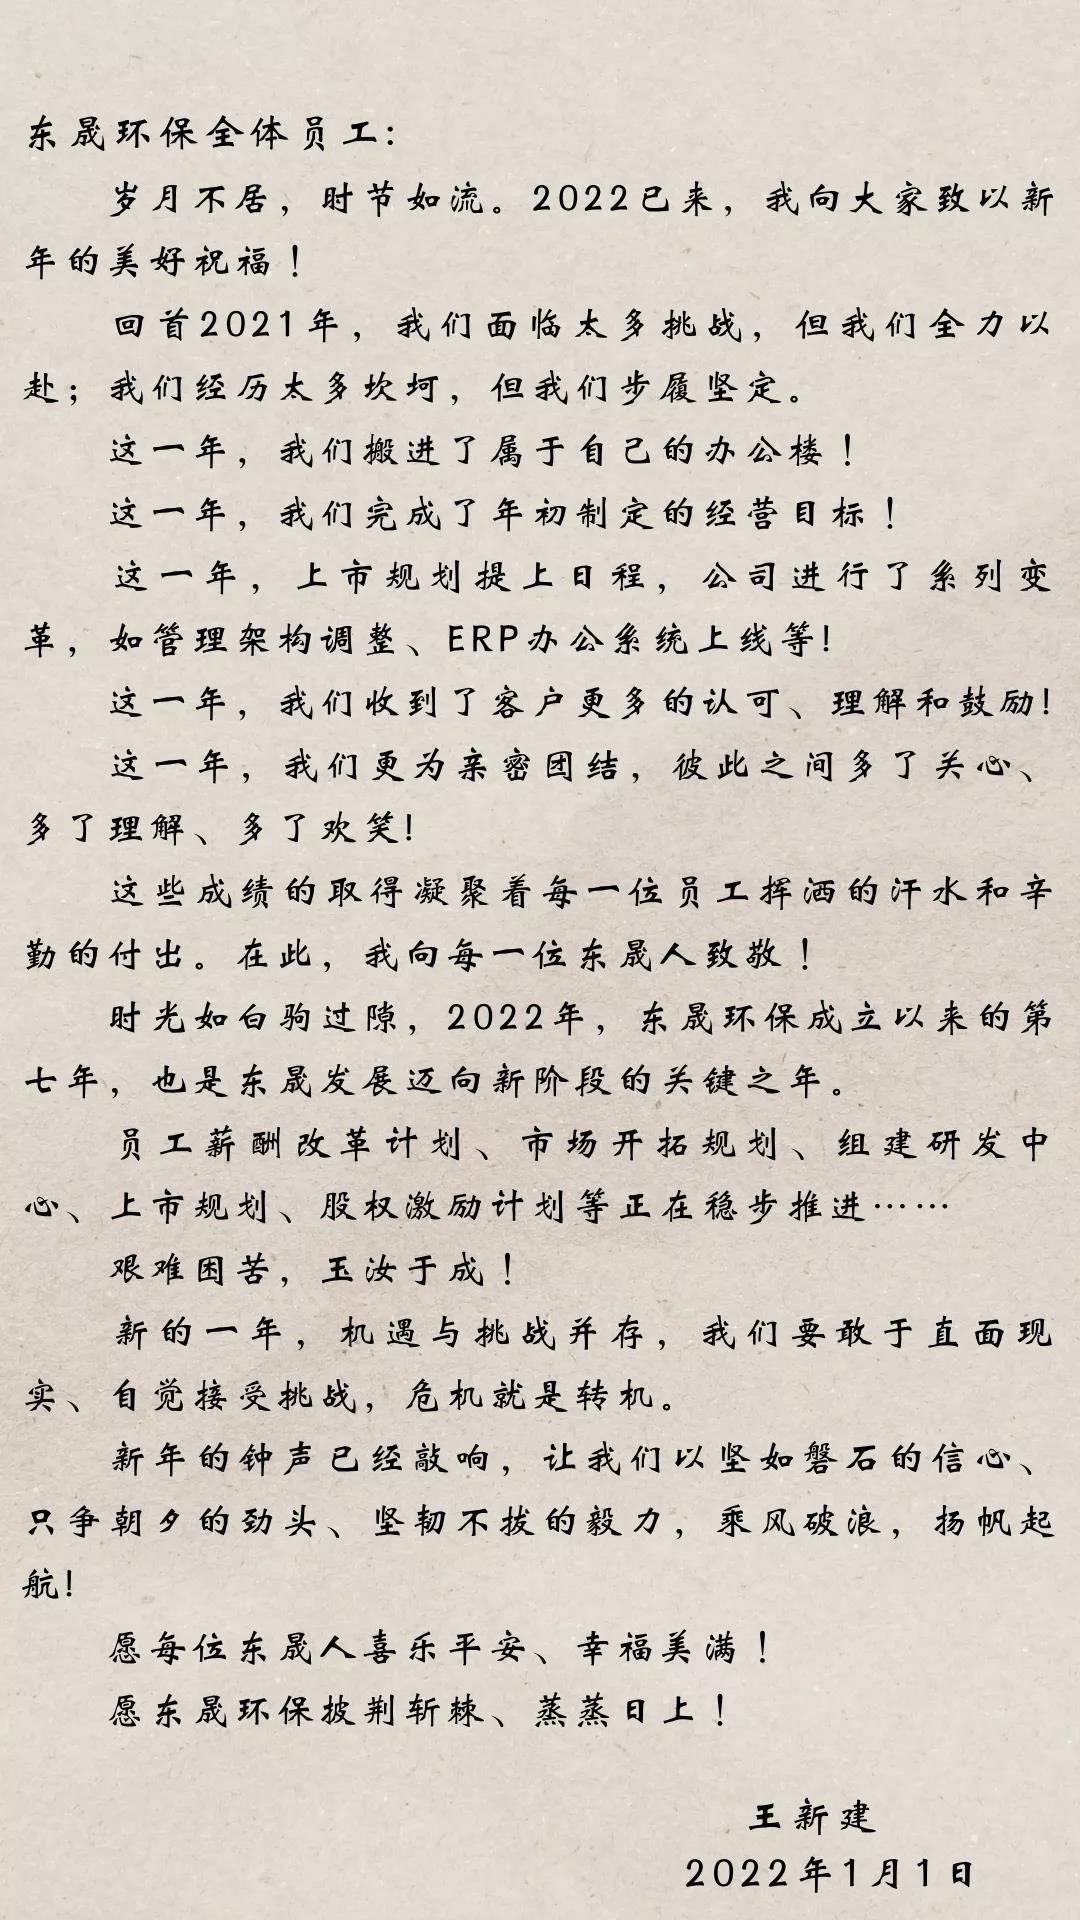 东晟环保全体员工:
岁月不居，时节如流。2022已来，我向大家致以新
年的美好祝福！
回首2021年，我们面临太多挑战，但我们全力以
赴；我们经历太多坎坷，但我们步履坚定。
这一年，我们搬进了属于自己的办公楼！
这一年，我们完成了年初制定的经营目标！
这一年，上市规划提上日程，公司进行了系列变
革，如管理架构调整、ERP办公系统上线等!
这一年，我们收到了客户更多的认可、理解和鼓励!
这一年，我们更为亲密团结，彼此之间多了关心、
多了理解、多了欢笑!
这些成绩的取得凝聚着每一位员工挥洒的汗水和辛
勤的付出。在此，我向每一位东晟人致敬！
时光如白驹过隙，2022年，东晟环保成立以来的第
七年，也是东晟发展迈向新阶段的关键之年。
员工薪酬改革计划、市场开拓规划、组建研发中
心、上市规划、股权激励计划等正在稳步推进……
艰难困苦，玉汝于成！
新的一年，机遇与挑战并存，我们要敢于直面现
实、自觉接受挑战，危机就是转机。
新年的钟声已经敲响，让我们以坚如磐石的信心、
只争朝夕的劲头、坚韧不拔的毅力，乘风破浪，扬帆起
航!
愿每位东晟人喜乐平安、幸福美满！
愿东晟环保披荆斩棘、蒸蒸日上！
王新建
2022年1月1日